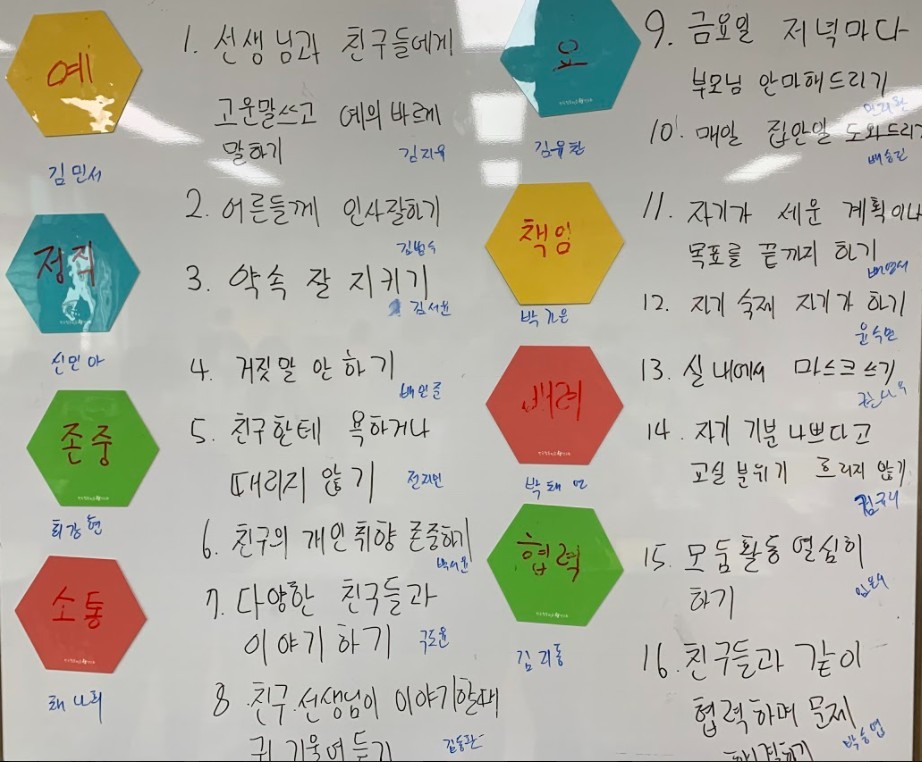 예
김민서
정직
신민아
존중
최강현
소통
채나희
1. 선생님과 친구들에게
고운말쓰고 예의 바르게
말하기
김지유
2. 어른들께 인사잘하기
김범수
3. 약속 잘 지키기
김서윤
4. 거짓말 안 하기
배인준
5. 친구한테 욕하거나
때리지 않기
전지민
6. 친구의 개인취향 존중하기
박서윤
7. 다양한 친구들과
이야기하기
구도윤
8. 친구.선생님이 이야기할때
귀 기울여 듣기
김동관
효
김유찬
책임
배려
협력
9. 금요일 저녁마다
부모님 안마해드리기
10. 매일 집안일 도와드리기
배승민
11. 자기가 세운 계획이나
목표를 끝까지 하기
12. 자기 숙제 자기가 하기
윤수민
13. 실내에서 마스크 쓰기
14. 자기 기분 나쁘다고
교실 분위기 흐리지 않기
15. 모둠활동 열심히
하기
16. 친구들과 같이
협력하며 문제
해결하기
박승엽